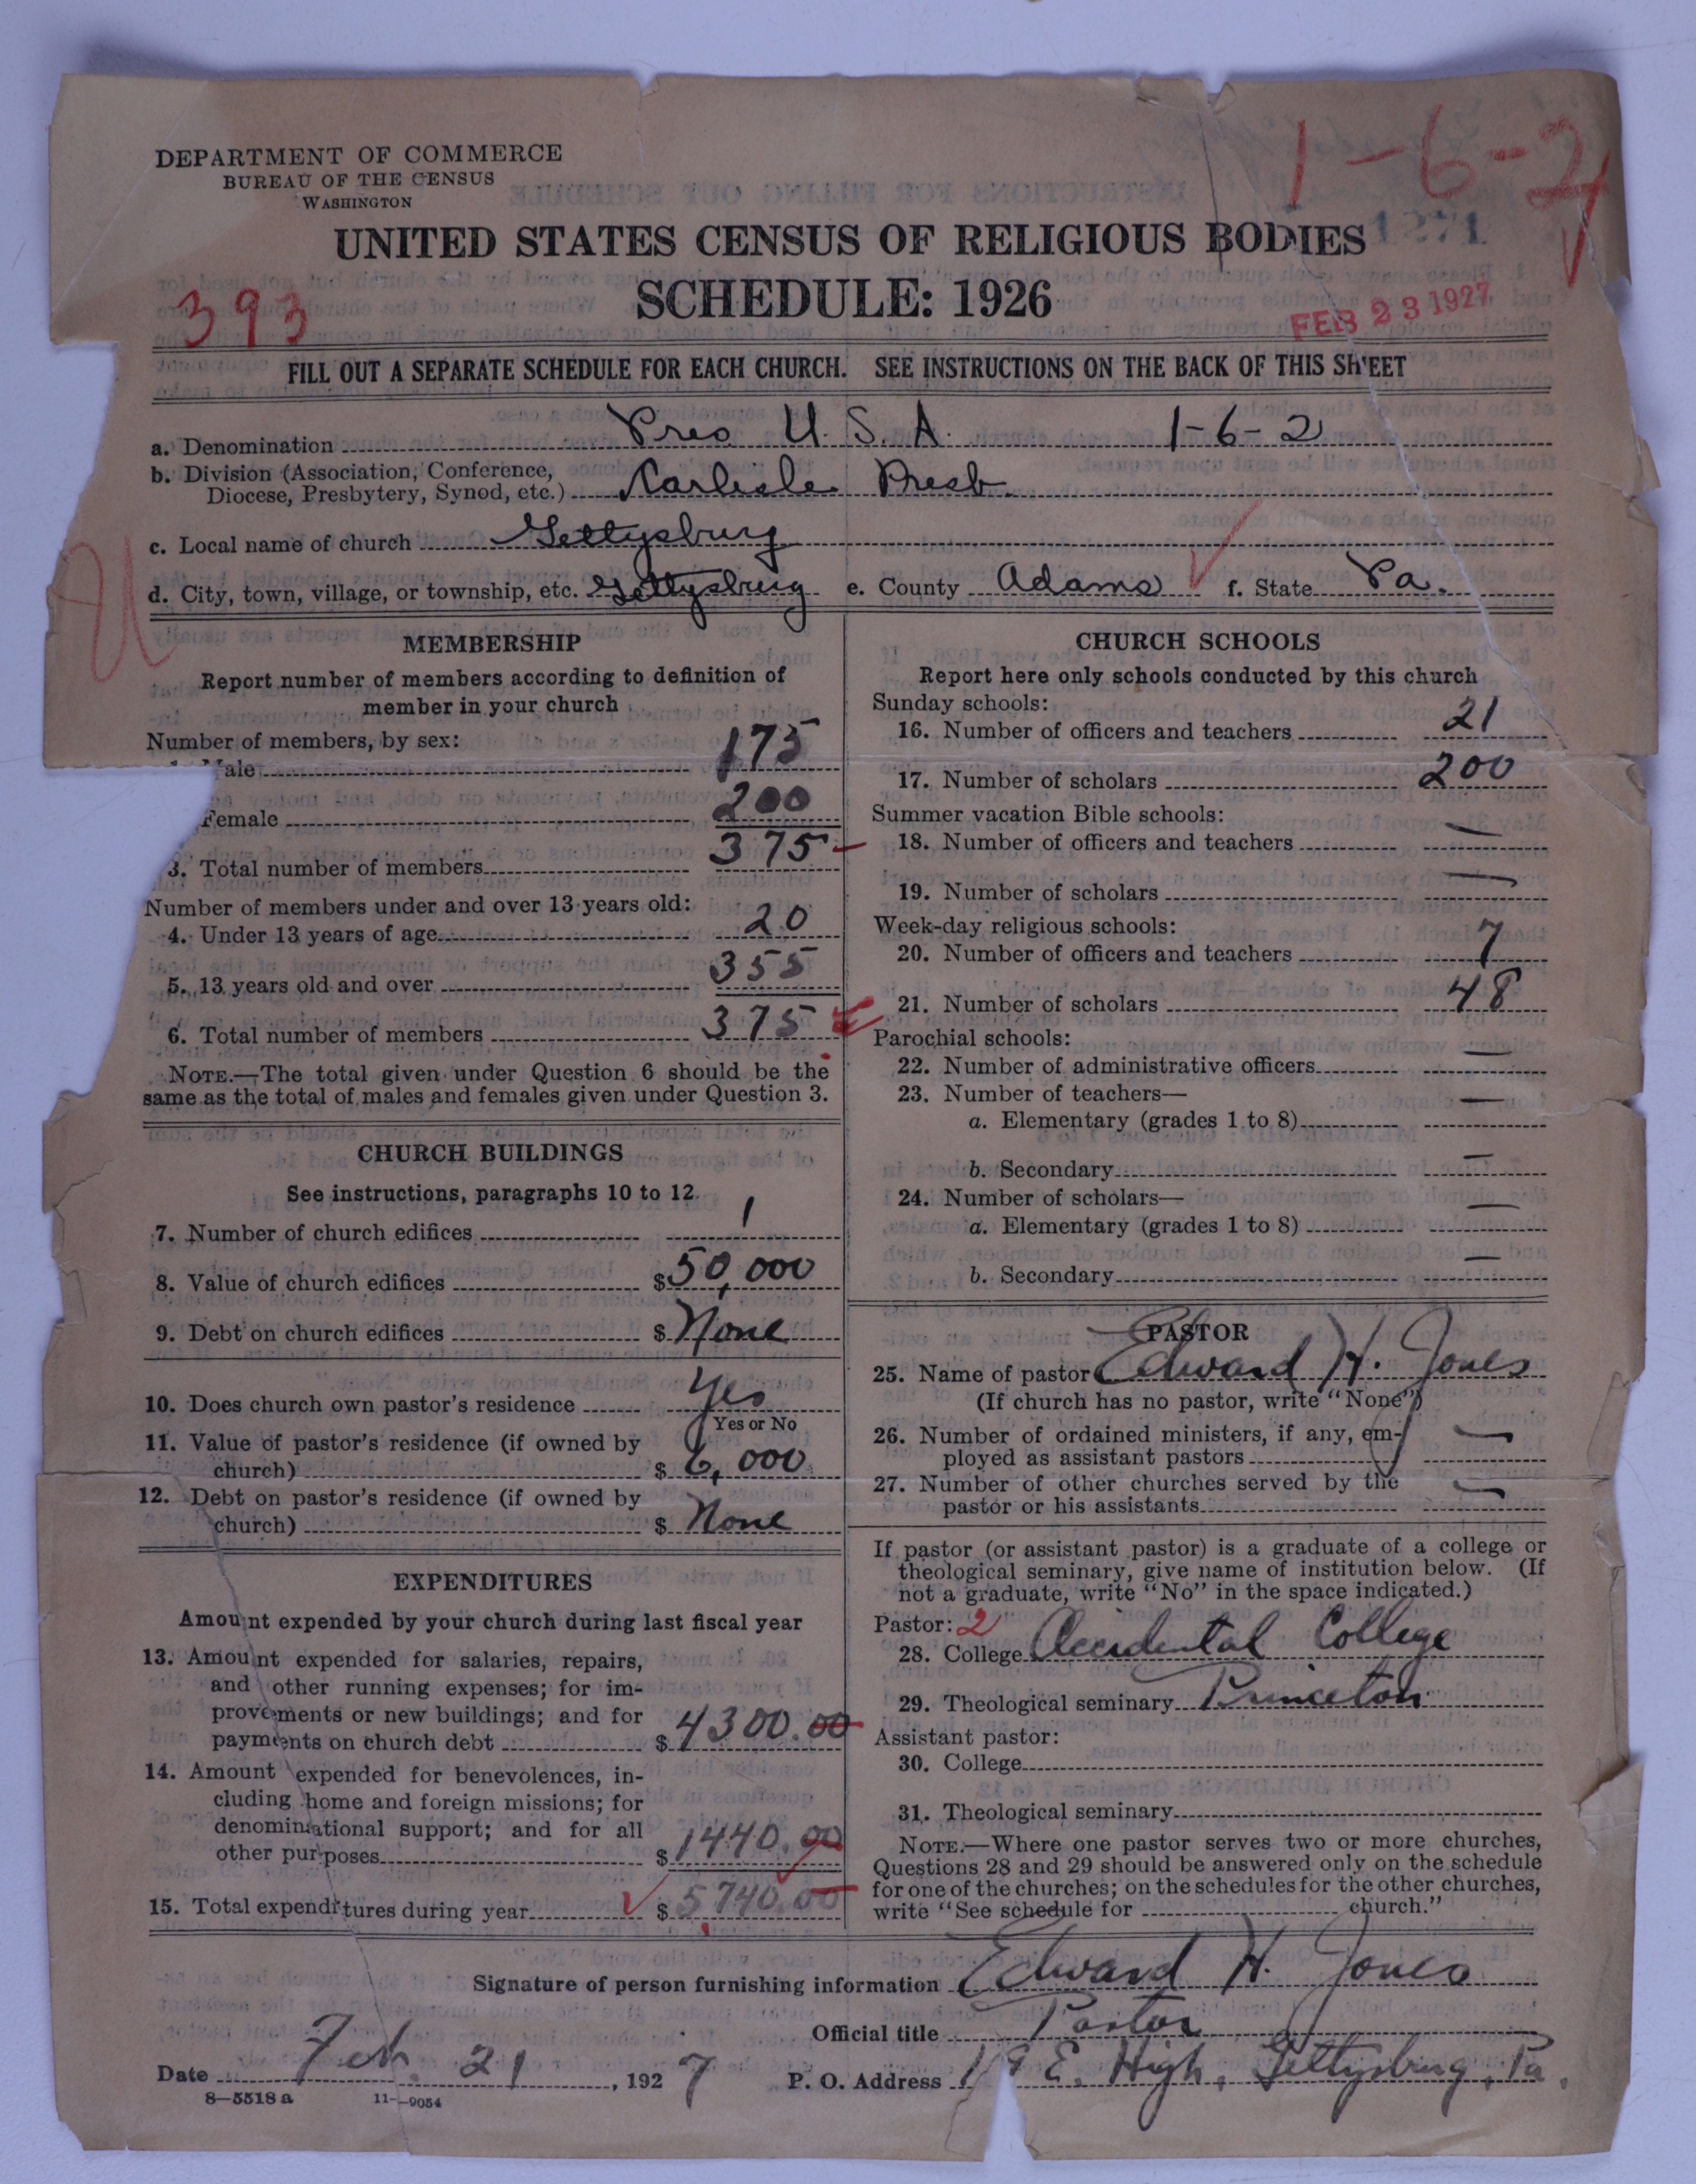 DEPARTMENT OF COMMERCE
BUREAU OF THE CENSUS
WASHINGTON
1-6-2
1271
UNITED STATES CENSUS OF RELIGIOUS BODIES
SCHEDULE: 1926
393
FEB 23 1927
FILL OUT A SEPARATE SCHEDULE FOR EACH CHURCH. SEE INSTRUCTIONS ON THE BACK OF THIS SHEET
a. Denomination Pres. U. S. A. 1-6-2
b. Division (Association, Conference,
Diocese, Presbytery, Synod, etc.) Carlisle Presb.
c. Local name of church Gettysburg
d. City, town, village, or township, etc. Gettysburg e. County Adams f. State Pa.
MEMBERSHIP
Report number of members according to definition of
member in your church
Number of members, by sex:
ale 175
Female 200
3. Total number of members 375
Number of members under and over 13 years old:
4. Under 13 years of age 20
5. 13 years old and over 355
6. Total number of members 375
NOTE.—The total given under Question 6 should be the
same as the total of males and females given under Question 3.
CHURCH BUILDINGS
See instructions, paragraphs 10 to 12.
7. Number of church edifices 1
8. Value of church edifices $50,000
9. Debt on church edifices $ None
10. Does church own pastor's residence Yes
Yes or No
11. Value of pastor's residence (if owned by
church) $ 6,000
12. Debt on pastor's residence (if owned by
church) $ None
EXPENDITURES
Amount expended by your church during last fiscal year
13. Amount expended for salaries, repairs,
and other running expenses; for im-
provements or new buildings; and for
payments on church debt $ 4300.00
14. Amount expended for benevolences, in-
cluding home and foreign missions; for
denominational support; and for all
other purposes $ 1440.00
15. Total expenditures during year $ 5740.00
CHURCH SCHOOLS
Report here only schools conducted by this church
Sunday schools:
16. Number of officers and teachers 21
17. Number of scholars 200
Summer vacation Bible schools:
18. Number of officers and teachers —
19. Number of scholars —
Week-day religious schools:
20. Number of officers and teachers 7
21. Number of scholars 48
Parochial schools:
22. Number of administrative officers —
23. Number of teachers—
a. Elementary (grades 1 to 8) —
b. Secondary —
24. Number of scholars—
a. Elementary (grades 1 to 8) —
b. Secondary —
PASTOR
25. Name of pastor Edward H. Jones
(If church has no pastor, write "None")
26. Number of ordained ministers, if any, em-
ployed as assistant pastors —
27. Number of other churches served by the
pastor or his assistants —
If pastor (or assistant pastor) is a graduate of a college or
theological seminary, give name of institution below. (If
not a graduate, write "No" in the space indicated.)
Pastor: 2
28. College Occidental College
29. Theological seminary Princeton
Assistant pastor:
30. College
31. Theological seminary
NOTE.—Where one pastor serves two or more churches,
Questions 28 and 29 should be answered only on the schedule
for one of the churches; on the schedules for the other churches,
write "See schedule for church."
Signature of person furnishing information Edward H. Jones
Official title Pastor
Date Feb. 21, 1927 P. O. Address E. High, Gettysburg, Pa.
8—5518 a 11—9054